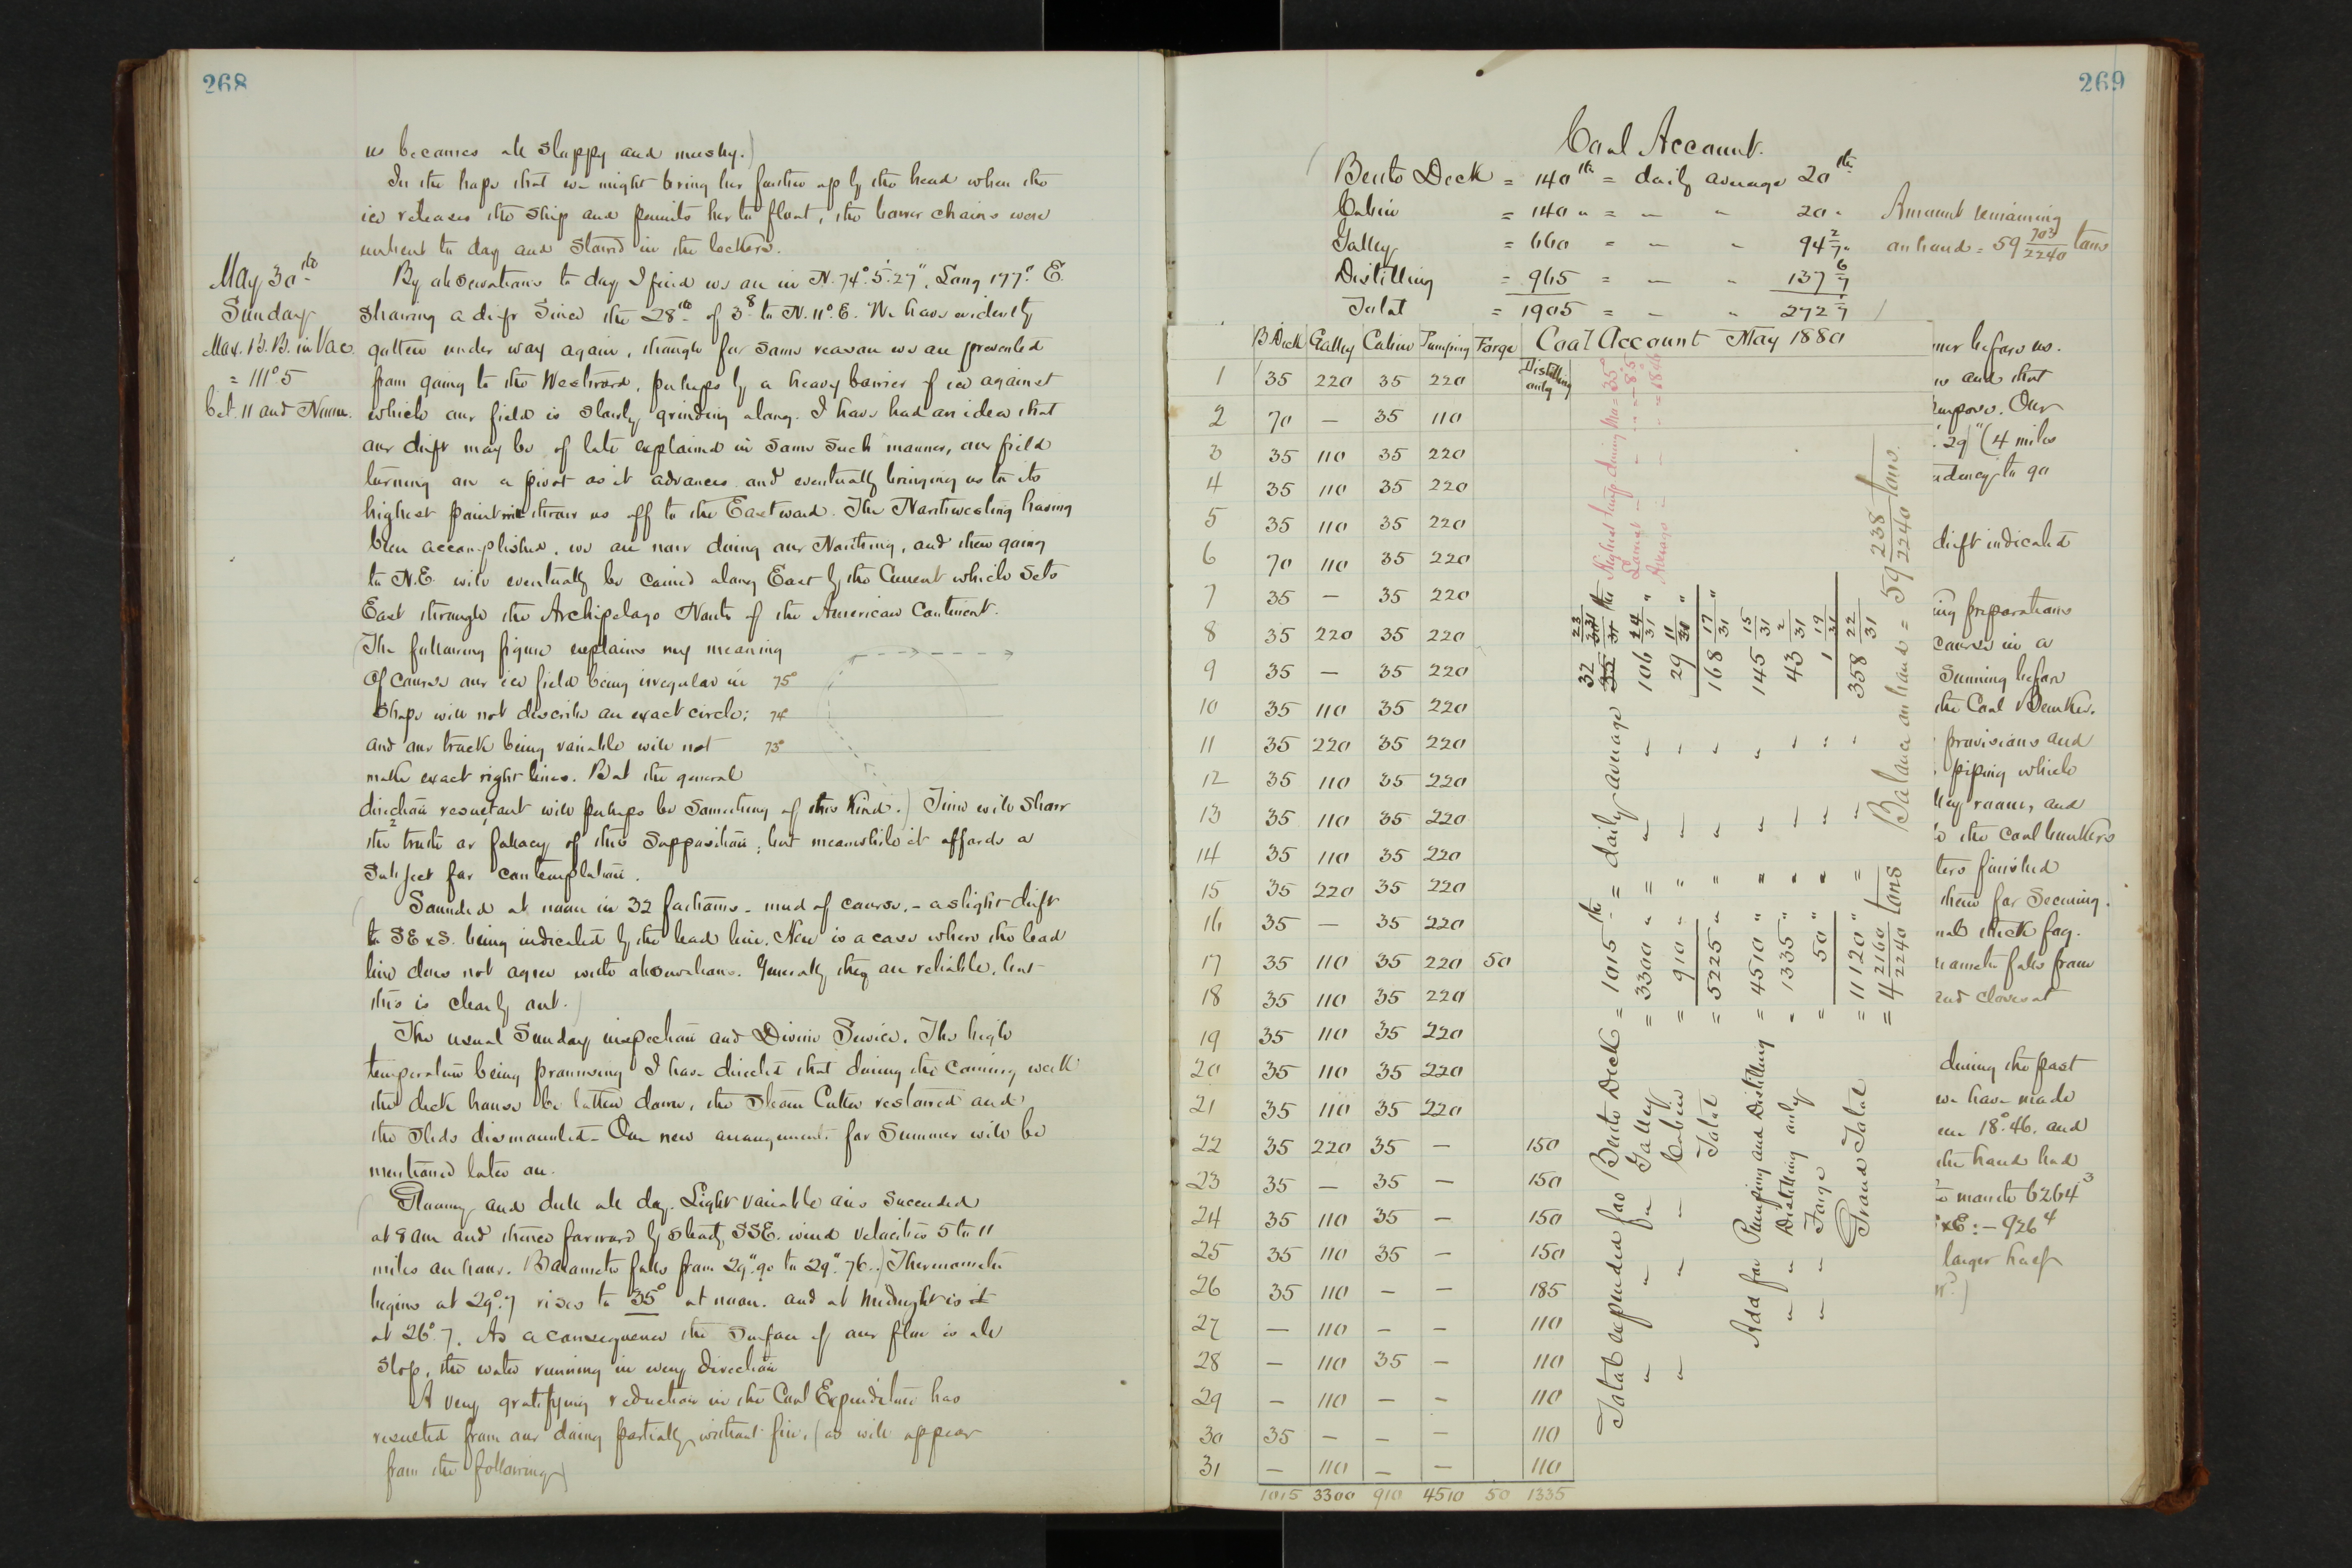 268
us becomes all sloppy and mushy.)
In the hope that we might bring her further up by the head when the
ice releases the ship and permits her to float, the bower chains were
unbent to day and stowed in the lockers.
May 30th
Sunday
Max. B. B. in Vac.
= 111°5
bet. 11 and Noon.
By observations to day I find us an in N. 74° 5' 27", Long 177° E.
showing a drift since the 28th of 3 8 to N. 11° E. We have evidently
gotten under way again, though for some reason we are prevented
from going to the Westward, perhaps by a heavy barrier of ice against
which our field is slowly grinding along. I have had an idea that
our drift may be of late explained in some such manner, our field
turning on a pivot as it advances and eventually bringing us to its
highest point will throw us off to the Eastward. The Northwesting having
been accomplished, we are now doing our Northing, and then going
to N.E. will eventually be carried along East by the Current which sets
East through the Archipelago North of the American Continent.
(The following figure explains my meaning
Of course our ice field being irregular in 75°
shape will not describe an exact circle; 74°
and our track being variable will not 73°
make exact right lines. But the general
direction resultant will perhaps be something of this kind.) Time will show
the truth or fallacy of this supposition; but meanwhile it affords a
subject for contemplation.
(Sounded at noon in 32 fathoms - mud of course. - a slight drift
to SE x S. being indicated by the lead line. Here is a case where the lead
line does not agree with observations. Generally they are reliable, but
this is clearly out.)
The usual Sunday inspection and Divine Service. The high
temperature being promising I have directed that during the coming week
the deck house be taken down, the Steam Cutter restowed and
the sleds dismounted. Our new arrangements for Summer will be
mentioned later on.
(Gloomy and dull all day. Light variable airs succeeded
at 8 am and thence forward by steady SSE. wind velocities 5 to 11
miles an hour. Barometer falls from 29".90 to 29".76.) Thermometer
begins at 29°.7 rises to 35° at noon. and at midnight is it
at 26°.7. As a consequence the surface of our floe is all
slop, the water running in every direction
A very gratifying reduction in the Coal Expenditure has
resulted from our doing partially without fire, (as will appear
from the following)
269
Coal Account.
Berth Deck = 140 lbs = daily average 20 lbs
Cabin = 140 " = " " 20 "
Galley = 660 = " " 94 2/7 "
Distilling = 965 = " " 137 6/7
Total = 1905 = " " 272 1/7
Amount remaining
on hand = 59 703/2240 tons
B. Deck Galley Cabin Pumping Forge Coal Account May 1880
Distilling only
1 35 220 35 220
2 70 — 35 110
3 35 110 35 220
4 35 110 35 220
5 35 110 35 220
6 70 110 35 220
7 35 — 35 220
8 35 220 35 220
9 35 — 35 220
10 35 110 35 220
11 35 220 35 220
12 35 110 35 220
13 35 110 35 220
14 35 110 35 220
15 35 220 35 220
16 35 — 35 220
17 35 110 35 220 50
18 35 110 35 220
19 35 110 35 220
20 35 110 35 220
21 35 110 35 220
22 35 220 35 — 150
23 35 — 35 — 150
24 35 110 35 — 150
25 35 110 35 — 150
26 35 110 — — 185
27 — 110 — — 110
28 — 110 35 — 110
29 — 110 — — 110
30 35 — — — 110
31 — 110 — — 110
1015 3300 910 4510 50 1335
Total expended for Berth Deck = 1015 lbs = daily average 32 23/31 lbs
" " Galley = 3300 " = " " 106 14/31 "
" " Cabin = 910 " = " " 29 11/31 "
Total = 5225 " = " " 168 17/31 "
Add for Pumping and Distilling = 4510 " = " " 145 15/31
" " Distilling only = 1335 " = " " 43 2/31
" " Forge = 50 " = " " 1 19/31
Grand Total = 11120 " = " " 358 22/31
= 4 2160/2240 tons
Balance on hand = 59 238/2240 tons.
Highest temp during Mo = 35°
Lowest " " " = -8.5
Average " " = 18.46
before us.
and that
purpose. Our
29" (4 miles
tendency to go
drift indicated
ing preparations
course in a
Sunning before
the Coal Bunker.
provisions and
piping which
room, and
the coal bunkers
finished
them for securing.
thick fog.
falls from
and closes at
during the past
we have made
18°.46. and
the hand had
month 6264 3
x E: — 926 4
larger half